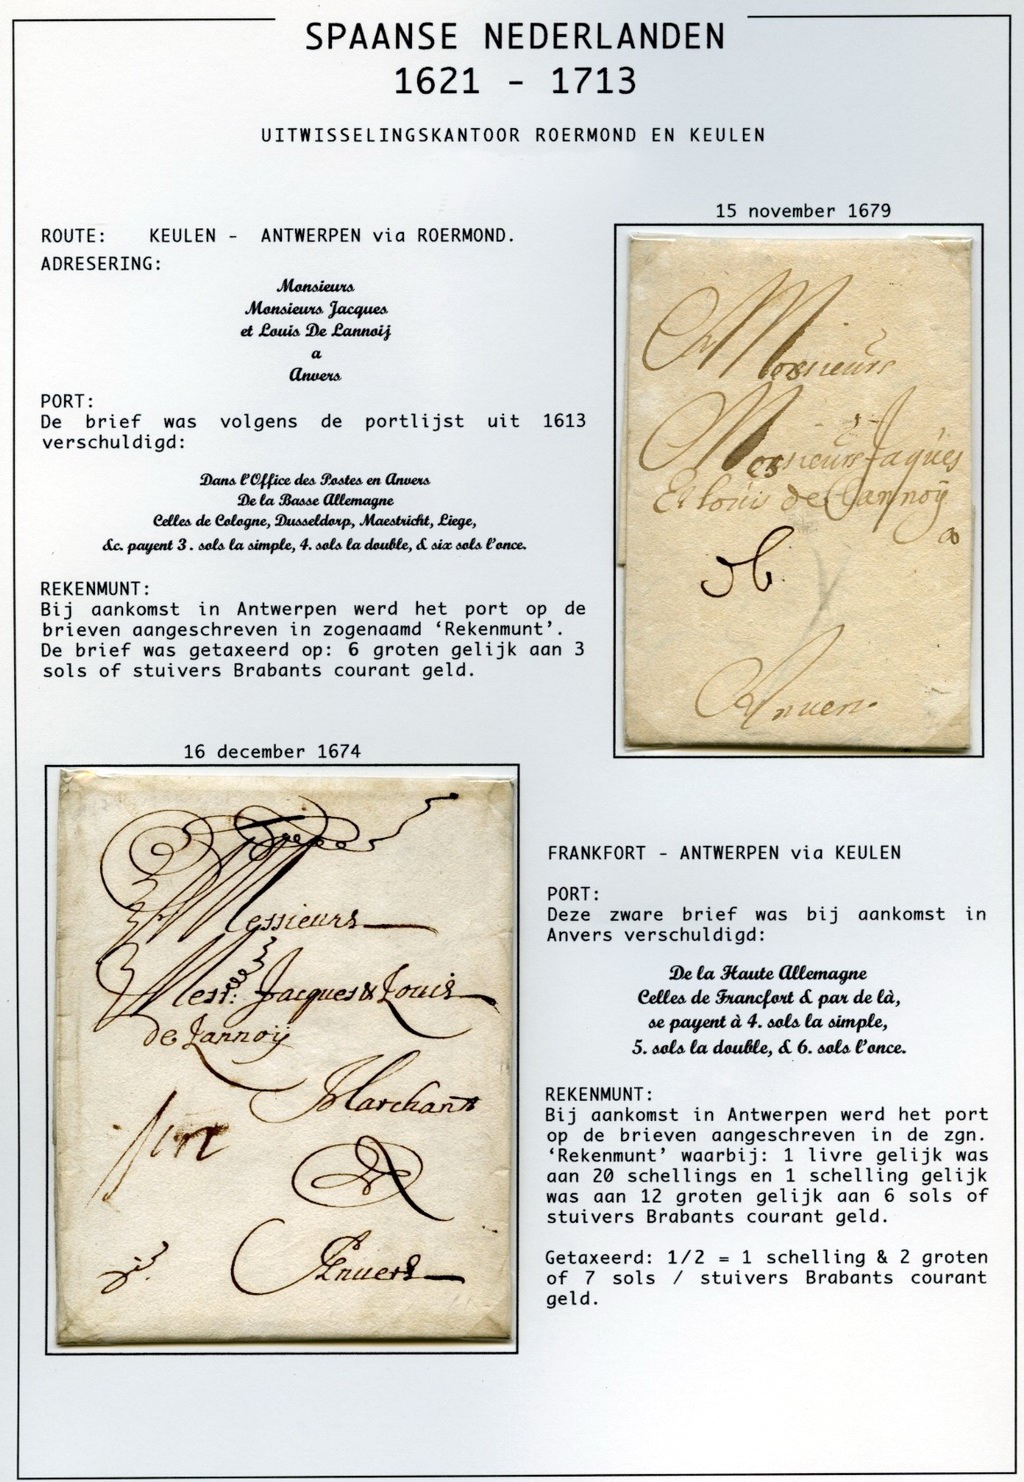 SPAANSE NEDERLANDEN
1621 - 1713
UITWISSELINGSKANTOOR ROERMOND EN KEULEN
15 november 1679
ROUTE: KEULEN - ANTWERPEN via ROERMOND.
ADRESERING:
Monsieurs
Monsieurs Jacques
et Louis De Lannoij
a
Anvers
PORT:
De brief was volgens de portlijst uit 1613
verschuldigd:
Dans l'Office des Postes en Anvers
De la Basse Allemagne
Celles de Cologne, Dusseldorp, Maestricht, Liege,
&c. payent 3. sols la simple, 4. sols la double, & six sols l'once.
REKENMUNT:
Bij aankomst in Antwerpen werd het port op de
brieven aangeschreven in zogenaamd 'Rekenmunt'.
De brief was getaxeerd op: 6 groten gelijk aan 3
sols of stuivers Brabants courant geld.
Monsieurs
Monsieurs Jaques
Et louis de Lannoÿ
a
Anvers
16 december 1674
Messieurs
Mess.rs Jacques & Louis
de Lannoÿ
Marchants
A
Anvers
FRANKFORT - ANTWERPEN via KEULEN
PORT:
Deze zware brief was bij aankomst in
Anvers verschuldigd:
De la Haute Allemagne
Celles de Francfort & par de là,
se payent à 4. sols la simple,
5. sols la double, & 6. sols l'once.
REKENMUNT:
Bij aankomst in Antwerpen werd het port
op de brieven aangeschreven in de zgn.
'Rekenmunt' waarbij: 1 livre gelijk was
aan 20 schellings en 1 schelling gelijk
was aan 12 groten gelijk aan 6 sols of
stuivers Brabants courant geld.
Getaxeerd: 1/2 = 1 schelling & 2 groten
of 7 sols / stuivers Brabants courant
geld.